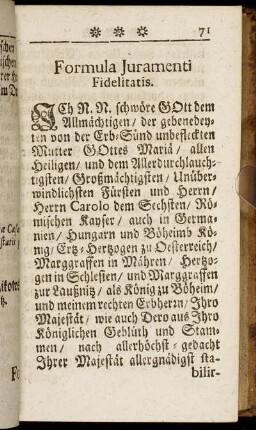 * * * 71
Formula Juramenti
Fidelitatis.
ICh N. N. schwöre GOtt dem
Allmächtigen / der gebenedey-
ten von der Erb-Sünd unbefleckten
Mutter GOttes Mariä / allen
Heiligen / und dem Allerdurchlauch-
tigsten / Großmächtigsten / Unüber-
windlichsten Fürsten und Herrn /
Herrn Carolo dem Sechsten / Rö-
mischen Kayser / auch in Germa-
nien / Hungarn und Böheimb Kö-
nig / Ertz-Hertzogen zu Oesterreich /
Marggraffen in Mähren / Hertzo-
gen in Schlesien / und Marggraffen
zur Laußnitz / als König zu Böheim /
und meinem rechten Erbherrn / Ihro
Majestät / wie auch Dero aus Ihro
Königlichen Geblüth und Stam-
men / nach allerhöchst-gedacht
Ihrer Majestät allergnädigst sta-
bilir-